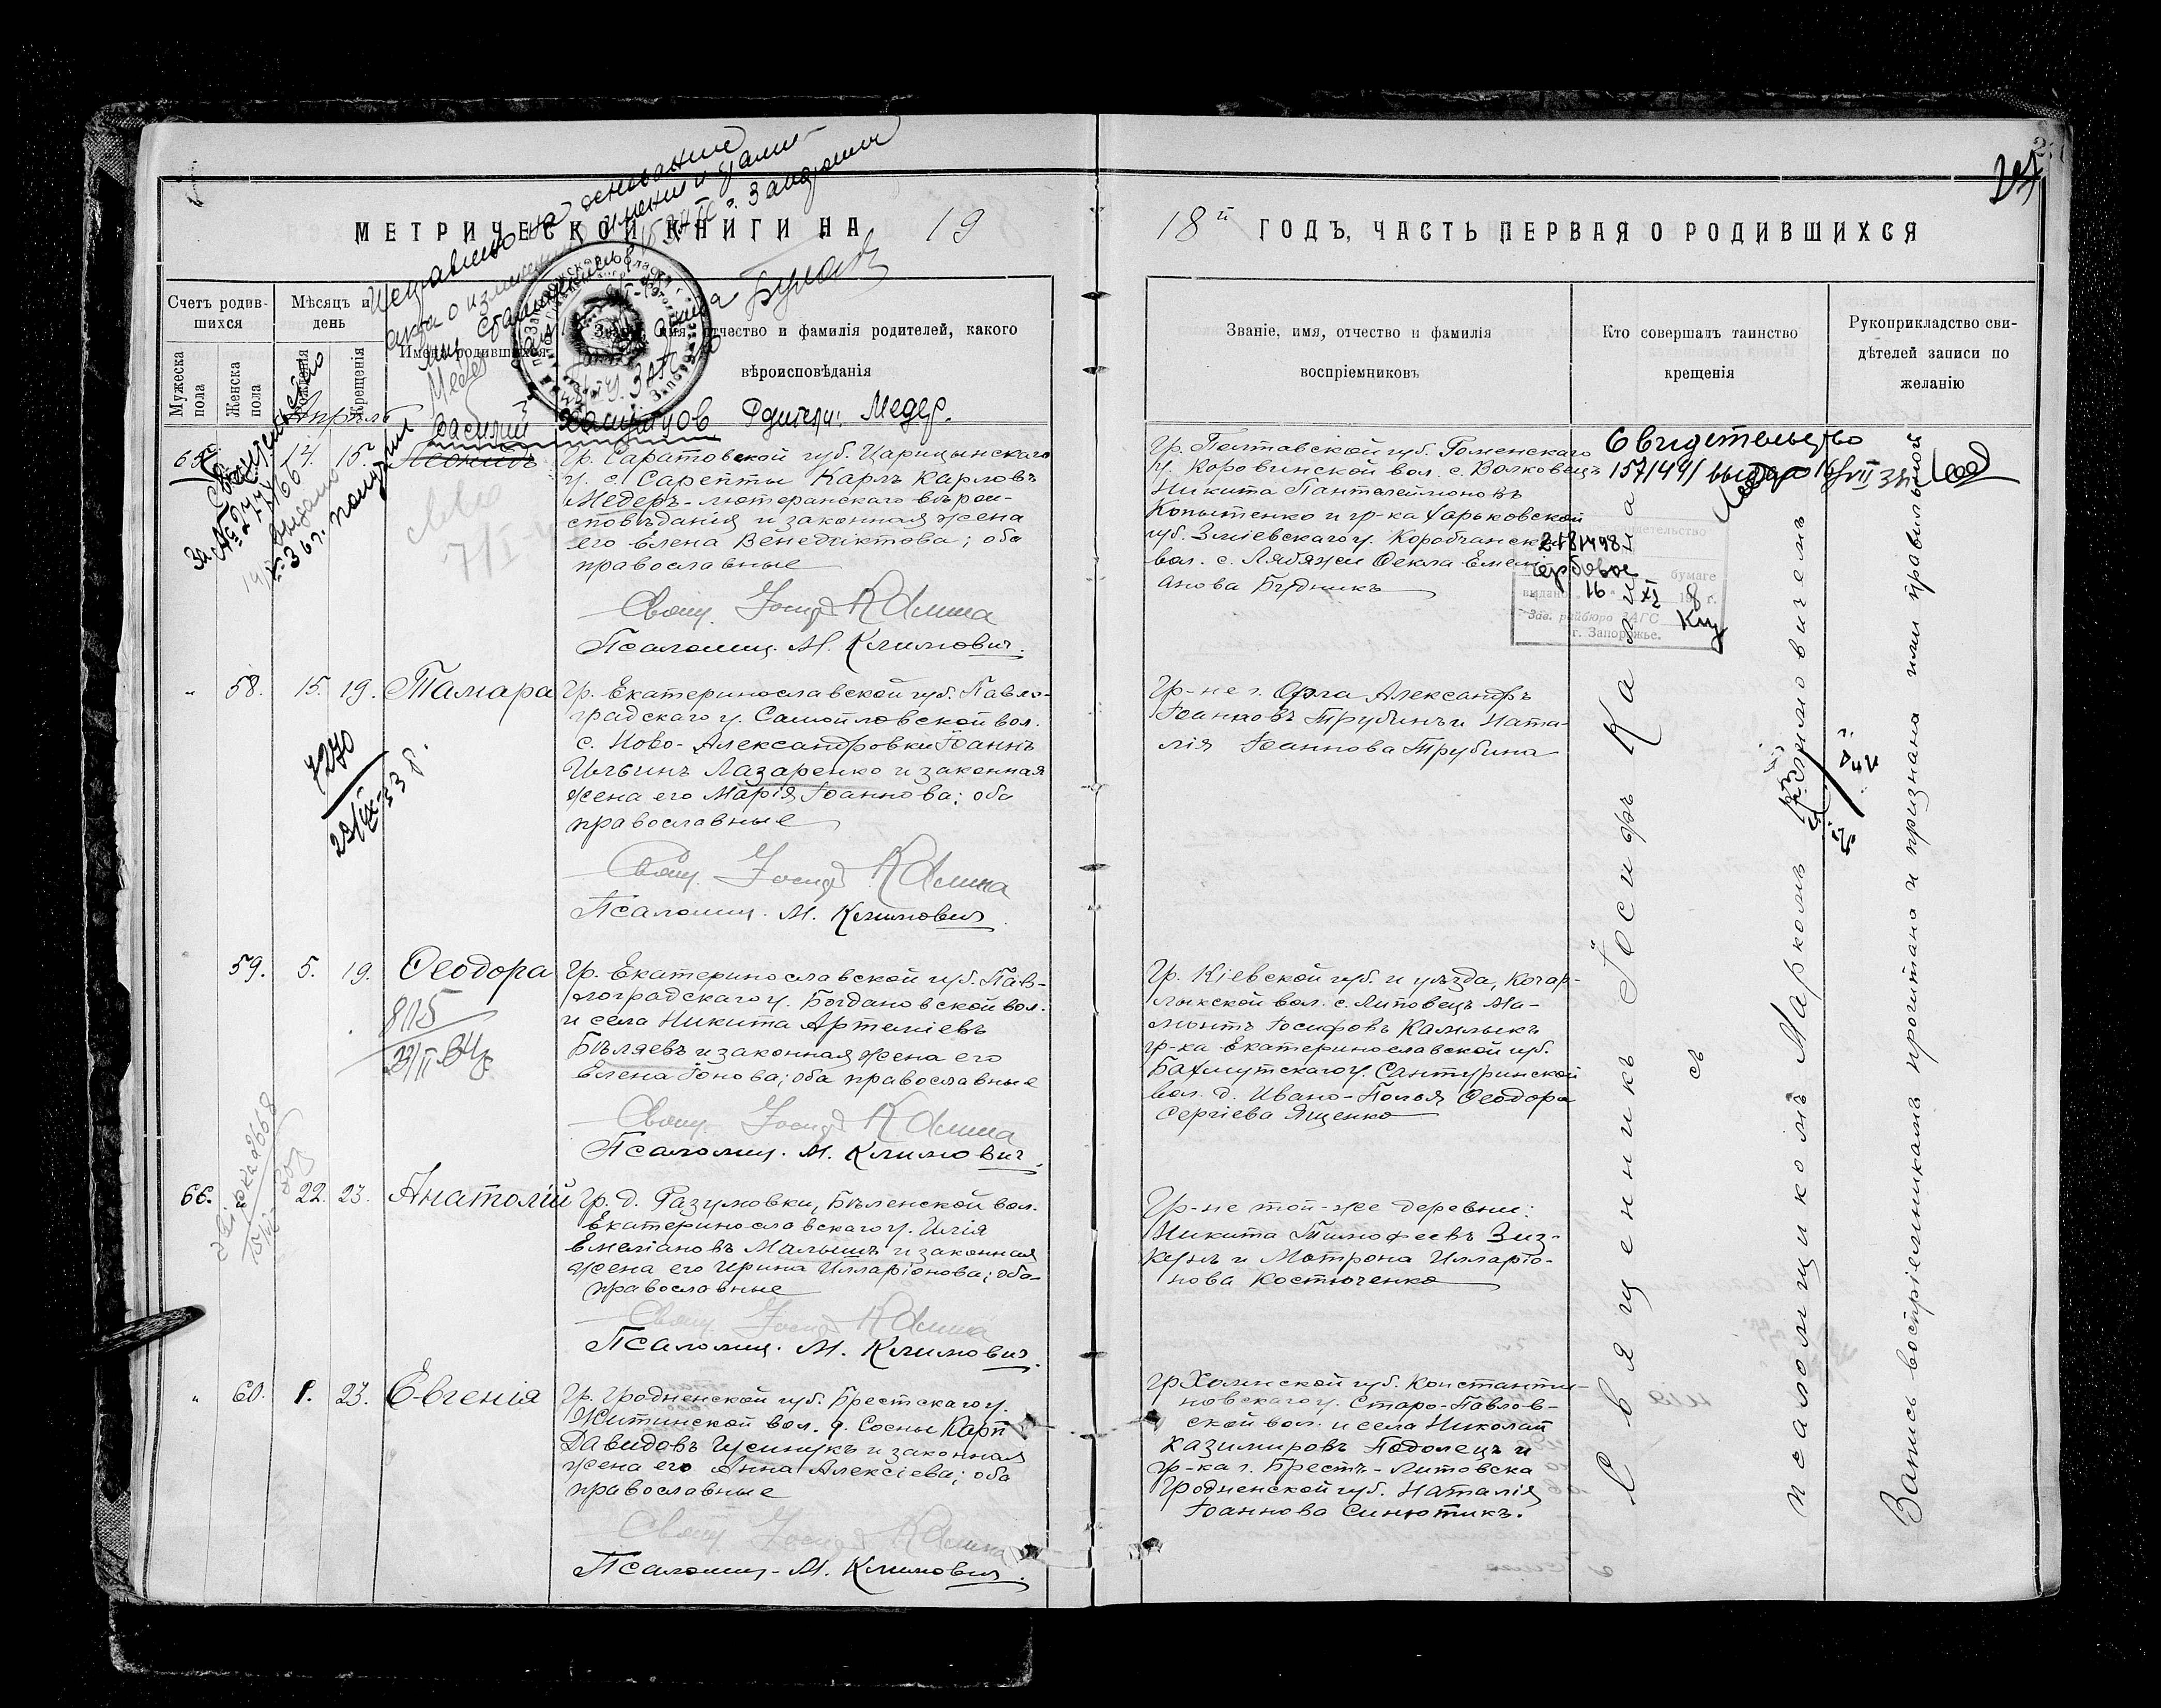 МЕТРИЧЕСКОЙ КНИГИ НА 19
18й ГОДЪ, ЧАСТЬ ПЕРВАЯ О РОДИВШИХСЯ
Счетъ родив-
шихся
Мужеска пола
Женска пола
Мѣсяцъ и
день
рожденія
Крещенія
Имена родившихся
Званіе, имя, отчество и фамилія родителей, какого
вѣроисповѣданія
Званіе, имя, отчество и фамилія
воспріемниковъ
Кто совершалъ таинство
крещенія
Рукоприкладство сви-
дѣтелей записи по
желанію
Апрѣль
Василий
Родители: Медер.
65. 14. 15. Леонидъ
Гр. Саратовской губ. Царицынскаго
у. с. Сарепты Карлъ Карловъ
Медеръ - лютеранскаго вѣрои-
сповѣданія и законная жена
его Елена Венедиктова; оба
православные
Свящ. Іосифъ Калина
Псаломщ. М. Климович.
Гр. Полтавской губ. Роменскаго
у. Коровинской вол. с. Волковецъ
Никита Пантелеймоновъ
Копытенко и гр-ка Харьковской
губ. Зміевскаго у. Коробчанской
вол. с. Лябяжи Ѳекла Емели
анова Будникъ
Свидетельство
157144
Зав. райбюро ЗАГС
г. Запорожье.
" 58. 15. 19. Тамара
7270
Гр. Екатеринославской губ. Павло-
градскаго у. Самойловской вол.
с. Ново-Александровки Іоаннъ
Ильинъ Лазаренко и законная
жена его Марія Іоаннова; оба
православные
Свящ. Іосифъ Калина
Псаломщ. М. Климович
Гр-не г. Орла Александръ
Іоанновъ Трубинъ и Ната-
лія Іоаннова Трубина
59. 5. 19. Ѳеодора
Гр. Екатеринославской губ. Пав-
лоградскаго у. Богдановской вол.
и села Никита Артеміевъ
Бѣляевъ и законная жена его
Елена Іонова; оба православные
Свящ. Іосифъ Калина
Псаломщ. М. Климович.
Гр. Кіевской губ. и уѣзда, Когар-
лыкской вол. с. Липовецъ Ма-
монтъ Іосифовъ Калмыкъ
гр-ка Екатеринославской губ.
Бахмутскаго у. Сантуринской
вол. д. Ивано-Полья Ѳеодора
Сергіева Ященко
66. " 22. 23. Анатолій
Гр. д. Разумовки, Бѣленской вол.
Екатеринославскаго у. Илія
Емеліановъ Малышъ и законная
жена его Ирина Илларіонова; оба
православные
Свящ. Іосифъ Калина
Псаломщ. М. Климович.
Гр-не той-же деревни:
Никита Тимофеевъ Зиз-
кунъ и Матрона Илларіо-
нова Костюченко
" 60. 1. 23. Евгенія
Гр. Гродненской губ. Брестскаго у.
Житинской вол. д. Сосны Карп
Давидовъ Гусинукъ и законная
жена его Анна Алексіева; оба
православные
Свящ. Іосифъ Калина
Псаломщ. М. Климович.
Гр Холмской губ. Константи-
новскаго у. Старо-Павлов-
ской вол. и села Николай
Казимировъ Подолецъ и
гр-ка г. Брестъ-Литовска
Гродненской губ. Наталія
Іоаннова Синютикъ.
Священникъ Іосифъ Калина
съ
псаломщикомъ Маркомъ Климовичемъ
Запись воспріемниками прочитана и признана ими правильной